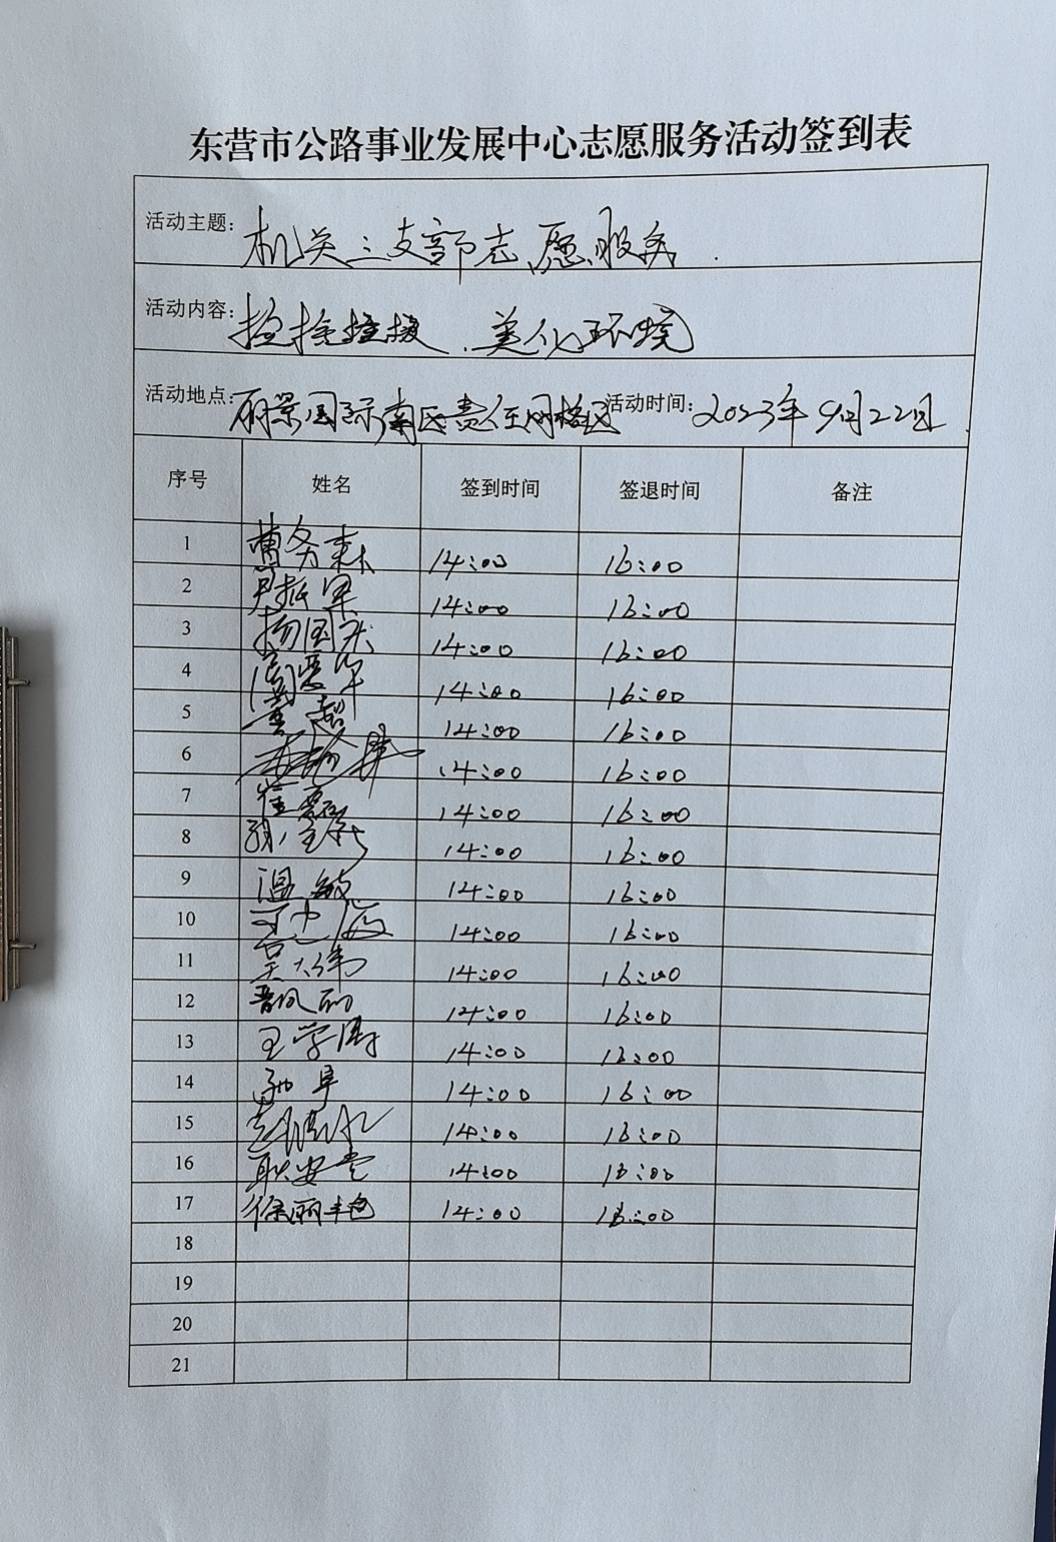 东营市公路事业发展中心志愿服务活动签到表
活动主题: 机关三支部志愿服务.
活动内容: 捡拾垃圾、美化环境
活动地点: 丽景国际南区责任网格区 活动时间: 2023年9月22日.
序号 姓名 签到时间 签退时间 备注
1 14:00 16:00
2 14:00 16:00
3 14:00 16:00
4 14:00 16:00
5 董超 14:00 16:00
6 14:00 16:00
7 崔磊 14:00 16:00
8 14:00 16:00
9 温敏 14:00 16:00
10 14:00 16:00
11 吴大伟 14:00 16:00
12 14:00 16:00
13 王学涛 14:00 16:00
14 14:00 16:00
15 14:00 16:00
16 耿安堂 14:00 16:00
17 徐丽艳 14:00 16:00
18
19
20
21